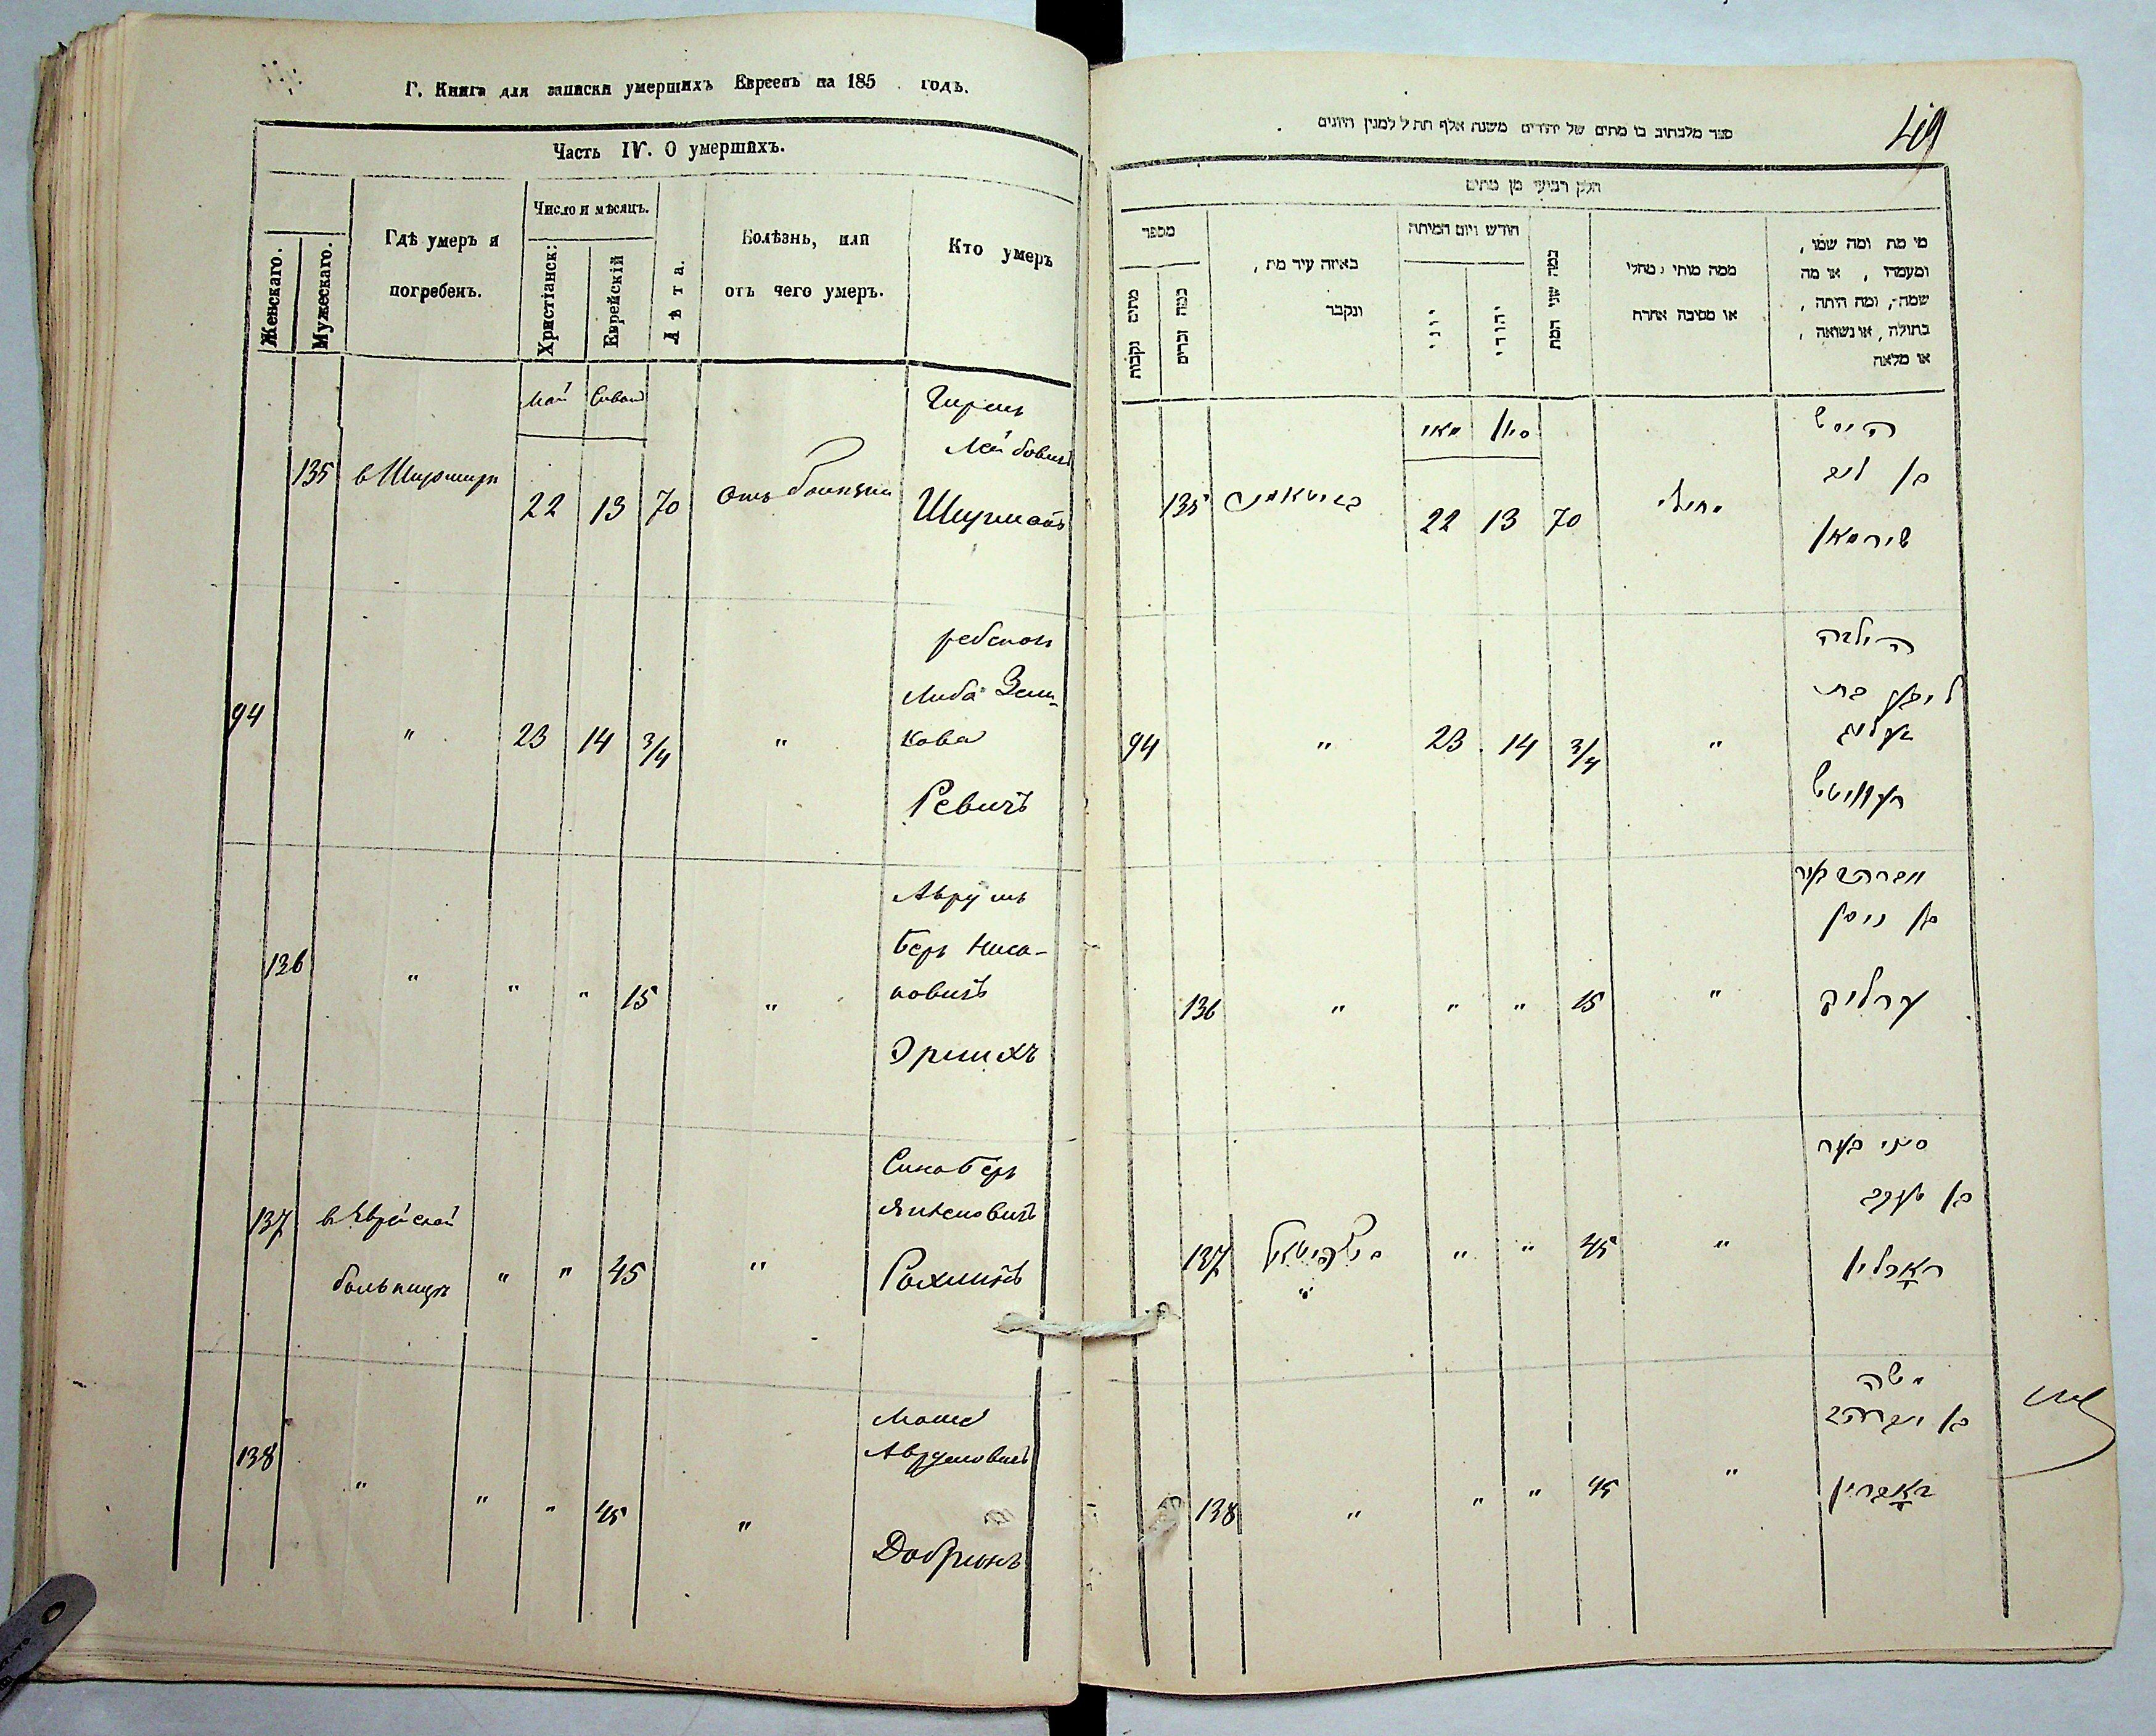 Г. Книга для записки умершихъ Евреевъ на 185 годъ.
Часть IV. О умершихъ.
Женскаго.
Мужескаго.
Гдѣ умеръ и
погребенъ.
Число и мѣсяцъ.
Христіанск:
Еврейскій
Лѣта.
Болѣзнь, или
отъ чего умеръ.
Кто умеръ
Май Сиван
135 в Житомире 22 13 70 Отъ болезни
Гирш
Лейбович
Шурманъ
94 " 23 14 3/4 "
ребенок
Либа Зели-
кова
Ревичъ
136 " " " 15 "
Аврум
Бер Ниса-
новичъ
Эрлихъ
137 в Еврейской
больнице " " 45 "
Сина Бер
Янкеловичъ
Рохлинъ
138 " " " 45 "
Мошко
Аврумовичъ
Добринъ
49
ספר מלכתוב בו מתים של יהודים משנת אלף תת ל למנין היונים
חלק רביעי מן מתים
מספר
מתים נקבות
כמה זכרים
באיזה עיר מת,
ונקבר
חודש ויום המיתה
יוני
יהודי
כמה שני המת
ממה מותי מחלי
או מסיבה אחרת
מי מת ומה שמו,
ומעמדו, או מה
שמה, ומה היתה,
בתולה, או נשואה,
או מלאה
מאי סיון
135 22 13 70 מחולי
הירש
בן ליב
שורמאן
94 " 23 14 3/4 "
הילדה
ליבע בת
זעליג
רעוויטש
136 " " " 15 "
אברהם בער
בן ניסן
ערליך
137 " " 45 "
סיני בער
בן יעקב
ראכלין
138 " " " 45 "
משה
בן אברהם
דאברין